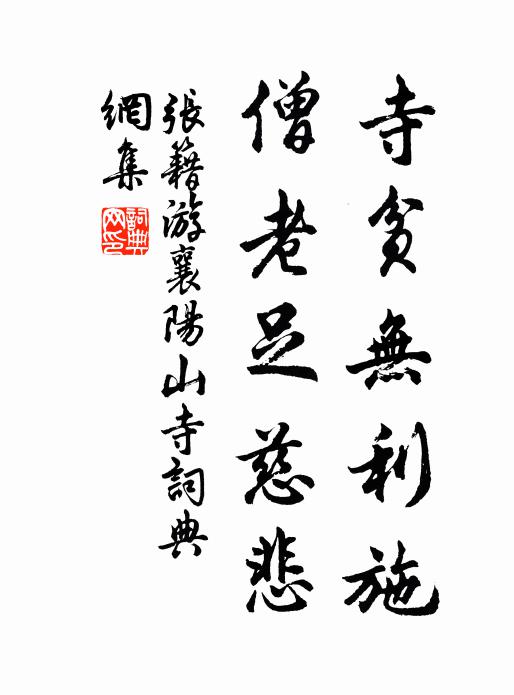 寺貧無利施
僧老足慈悲
張籍游襄陽山寺詞典
網集
詞典
网印